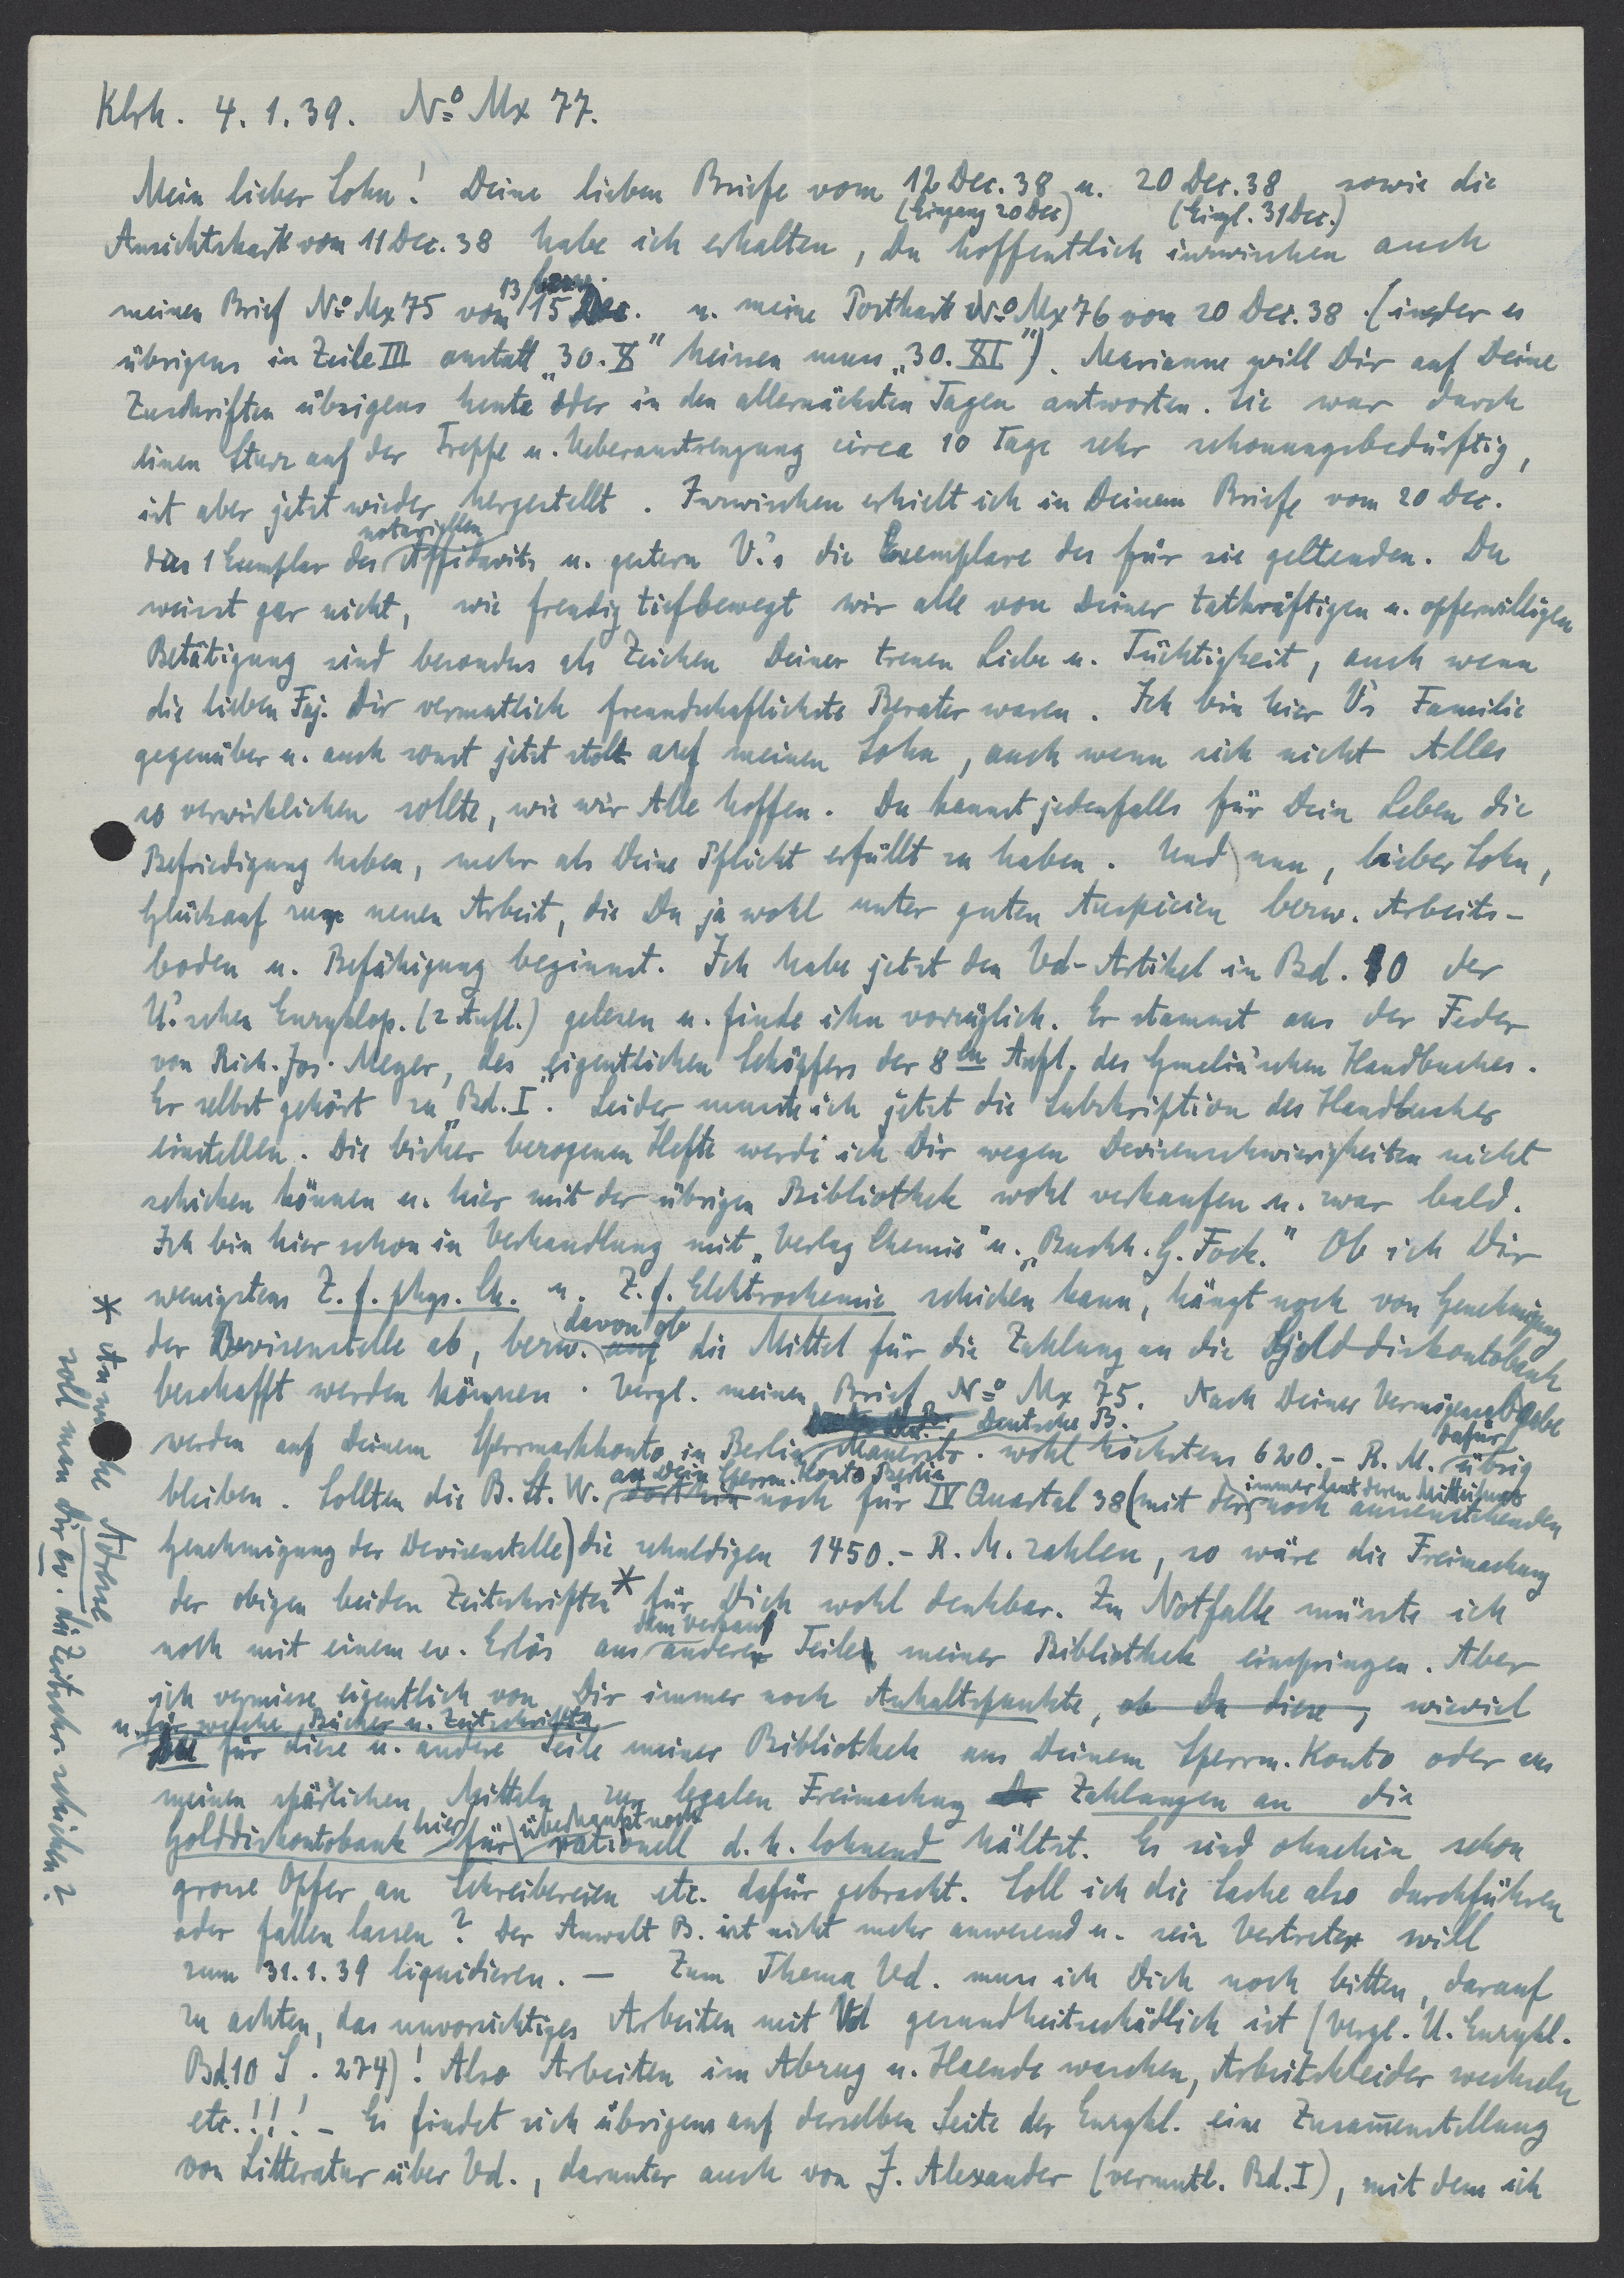 Klrh. 4.1.39. No Mx 77.
Mein lieber Sohn! Deine lieben Briefe vom 12 Dec. 38 u. 20 Dec. 38 sowie die
(Eingang 20 Dec) (Eingl. 31 Dec.)
Ansichtskart vom 11 Dec. 38 habe ich erhalten, Du hoffentlich inzwischen auch
13 bezw.
meinen Brief No Mx 75 vom 15 Dec. u. meine Postkart No Mx 76 vom 20 Dec. 38. (in der es
übrigens in Zeile III anstatt „30. X" heissen muss „30. XI"). Marianne will Dir auf Deine
Zuschriften übrigens heute oder in den allernächsten Tagen antworten. Sie war durch
einen Sturz auf der Treppe u. Ueberanstrengung circa 10 Tage sehr schonungsbedürftig,
ist aber jetzt wieder hergestellt. Inzwischen erhielt ich in Deinem Briefe vom 20 Dec.
notariellen
das 1 Exemplar des Affidavits u. gestern V.'s die Exemplare der für sie geltenden. Du
weisst gar nicht, wie freudig tiefbewegt wir alle von Deiner tatkräftigen u. opferwilligen
Betätigung sind besonders als Zeichen Deiner treuen Liebe u. Tüchtigkeit, auch wenn
die lieben Faj. Dir vermutlich freundschaftlichste Berater waren. Ich bin hier V's Familie
gegenüber u. auch sonst jetzt stolz auf meinen Sohn, auch wenn sich nicht Alles
so verwirklichen sollte, wie wir Alle hoffen. Du kannst jedenfalls für Dein Leben die
Befriedigung haben, mehr als Deine Pflicht erfüllt zu haben. Und nun, lieber Sohn,
Glückauf zur neuen Arbeit, die Du ja wohl unter guten Auspicien bezw. Arbeits-
boden u. Befähigung beginnst. Ich habe jetzt den Vd-Artikel in Bd. 10 der
U.'schen Enzyklop. (2 Aufl.) gelesen u. finde ihn vorzüglich. Er stammt aus der Feder
von Rich. Jos. Meyer, des eigentlichen Schöpfers der 8ten Aufl. des Gmelin'schen Handbuches.
Er selbst gehört zu „Bd. I". Leider musste ich jetzt die Subskription des Handbuches
einstellen. Die bisher bezogenen Hefte werde ich Dir wegen Devisenschwierigkeiten nicht
schicken können u. hier mit der übrigen Bibliothek wohl verkaufen u. zwar bald.
Ich bin hier schon in Verhandlung mit „Verlag Chemie" u. „Buchh. G. Fock." Ob ich Dir
wenigstens Z. f. phys. Ch. u. Z. f. Elektrochemie schicken kann, hängt noch von Genehmigung
davon ob
der Devisenstelle ab, bezw. auf die Mittel für die Zahlung an die Golddiskontobank
beschafft werden können. Vergl. meinen Brief No Mx 75. Nach Deiner Vermögensabgabe
Deutsche B. dafür
werden auf Deinem Sperrmarkkonto in Berlin Mauerstr. wohl höchstens 620.- R. M. übrig
an Dein Sperrm. Konto Berlin immer laut deren Mitteilung
bleiben. Sollten die B. St. W. dorthin noch für IV Quartal 38 (mit der noch aussenstehenden
Genehmigung der Devisenstelle) die schuldigen 1450.- R. M. zahlen, so wäre die Freimachung
der obigen beiden Zeitschriften * für Dich wohl denkbar. Im Notfalle müsste ich
dem Verkauf
noch mit einem ev. Erlös aus anderer Teilen meiner Bibliothek einspringen. Aber
ich vermisse eigentlich von Dir immer noch Anhaltspunkte, ob Du diese, wieviel
u. für welche Bücher u. Zeitschriften
Du für diese u. andere Teile meiner Bibliothek aus Deinem Sperrm. Konto oder aus
meinen spärlichen Mitteln zur legalen Freimachung Du Zahlungen an die
hier überhaupt noch
Golddiskontobank für rationell d. h. lohnend hältst. Es sind ohnehin schon
grosse Opfer an Schreibereien etc. dafür gebracht. Soll ich die Sache also durchführen
oder fallen lassen? Der Anwalt B. ist nicht mehr anwesend u. sein Vertreter will
zum 31.1.39 liquidieren. — Zum Thema Vd. muss ich Dich noch bitten, darauf
zu achten, das unvorsichtiges Arbeiten mit Vd gesundheitsschädlich ist (Vergl. U. Enzykl.
Bd. 10 S. 274)! Also Arbeiten im Abzug u. Haende waschen, Arbeitskleider wechseln
etc.!!! - Es findet sich übrigens auf derselben Seite der Enzykl. eine Zusam̅enstellung
von Litteratur über Vd., darunter auch von J. Alexander (vermutl. Bd. I), mit dem ich
* An welche Adresse
soll man dir ev. die Zeitschr. schicken?